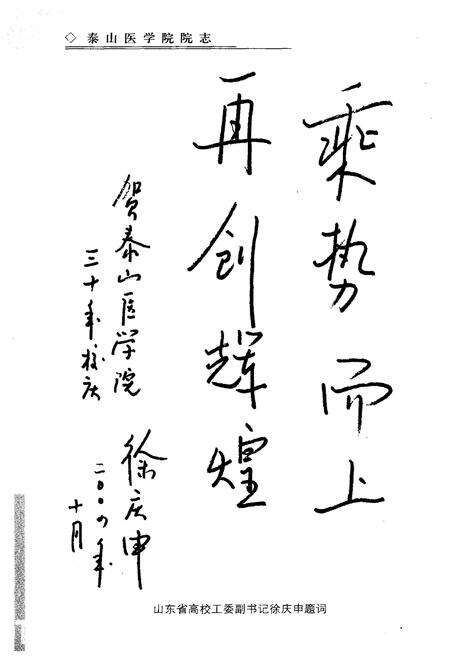 ◇ 泰山医学院院志
乘势而上
再创辉煌
贺泰山医学院
三十年校庆
徐庆申
二〇〇四年
十月
山东省高校工委副书记徐庆申题词